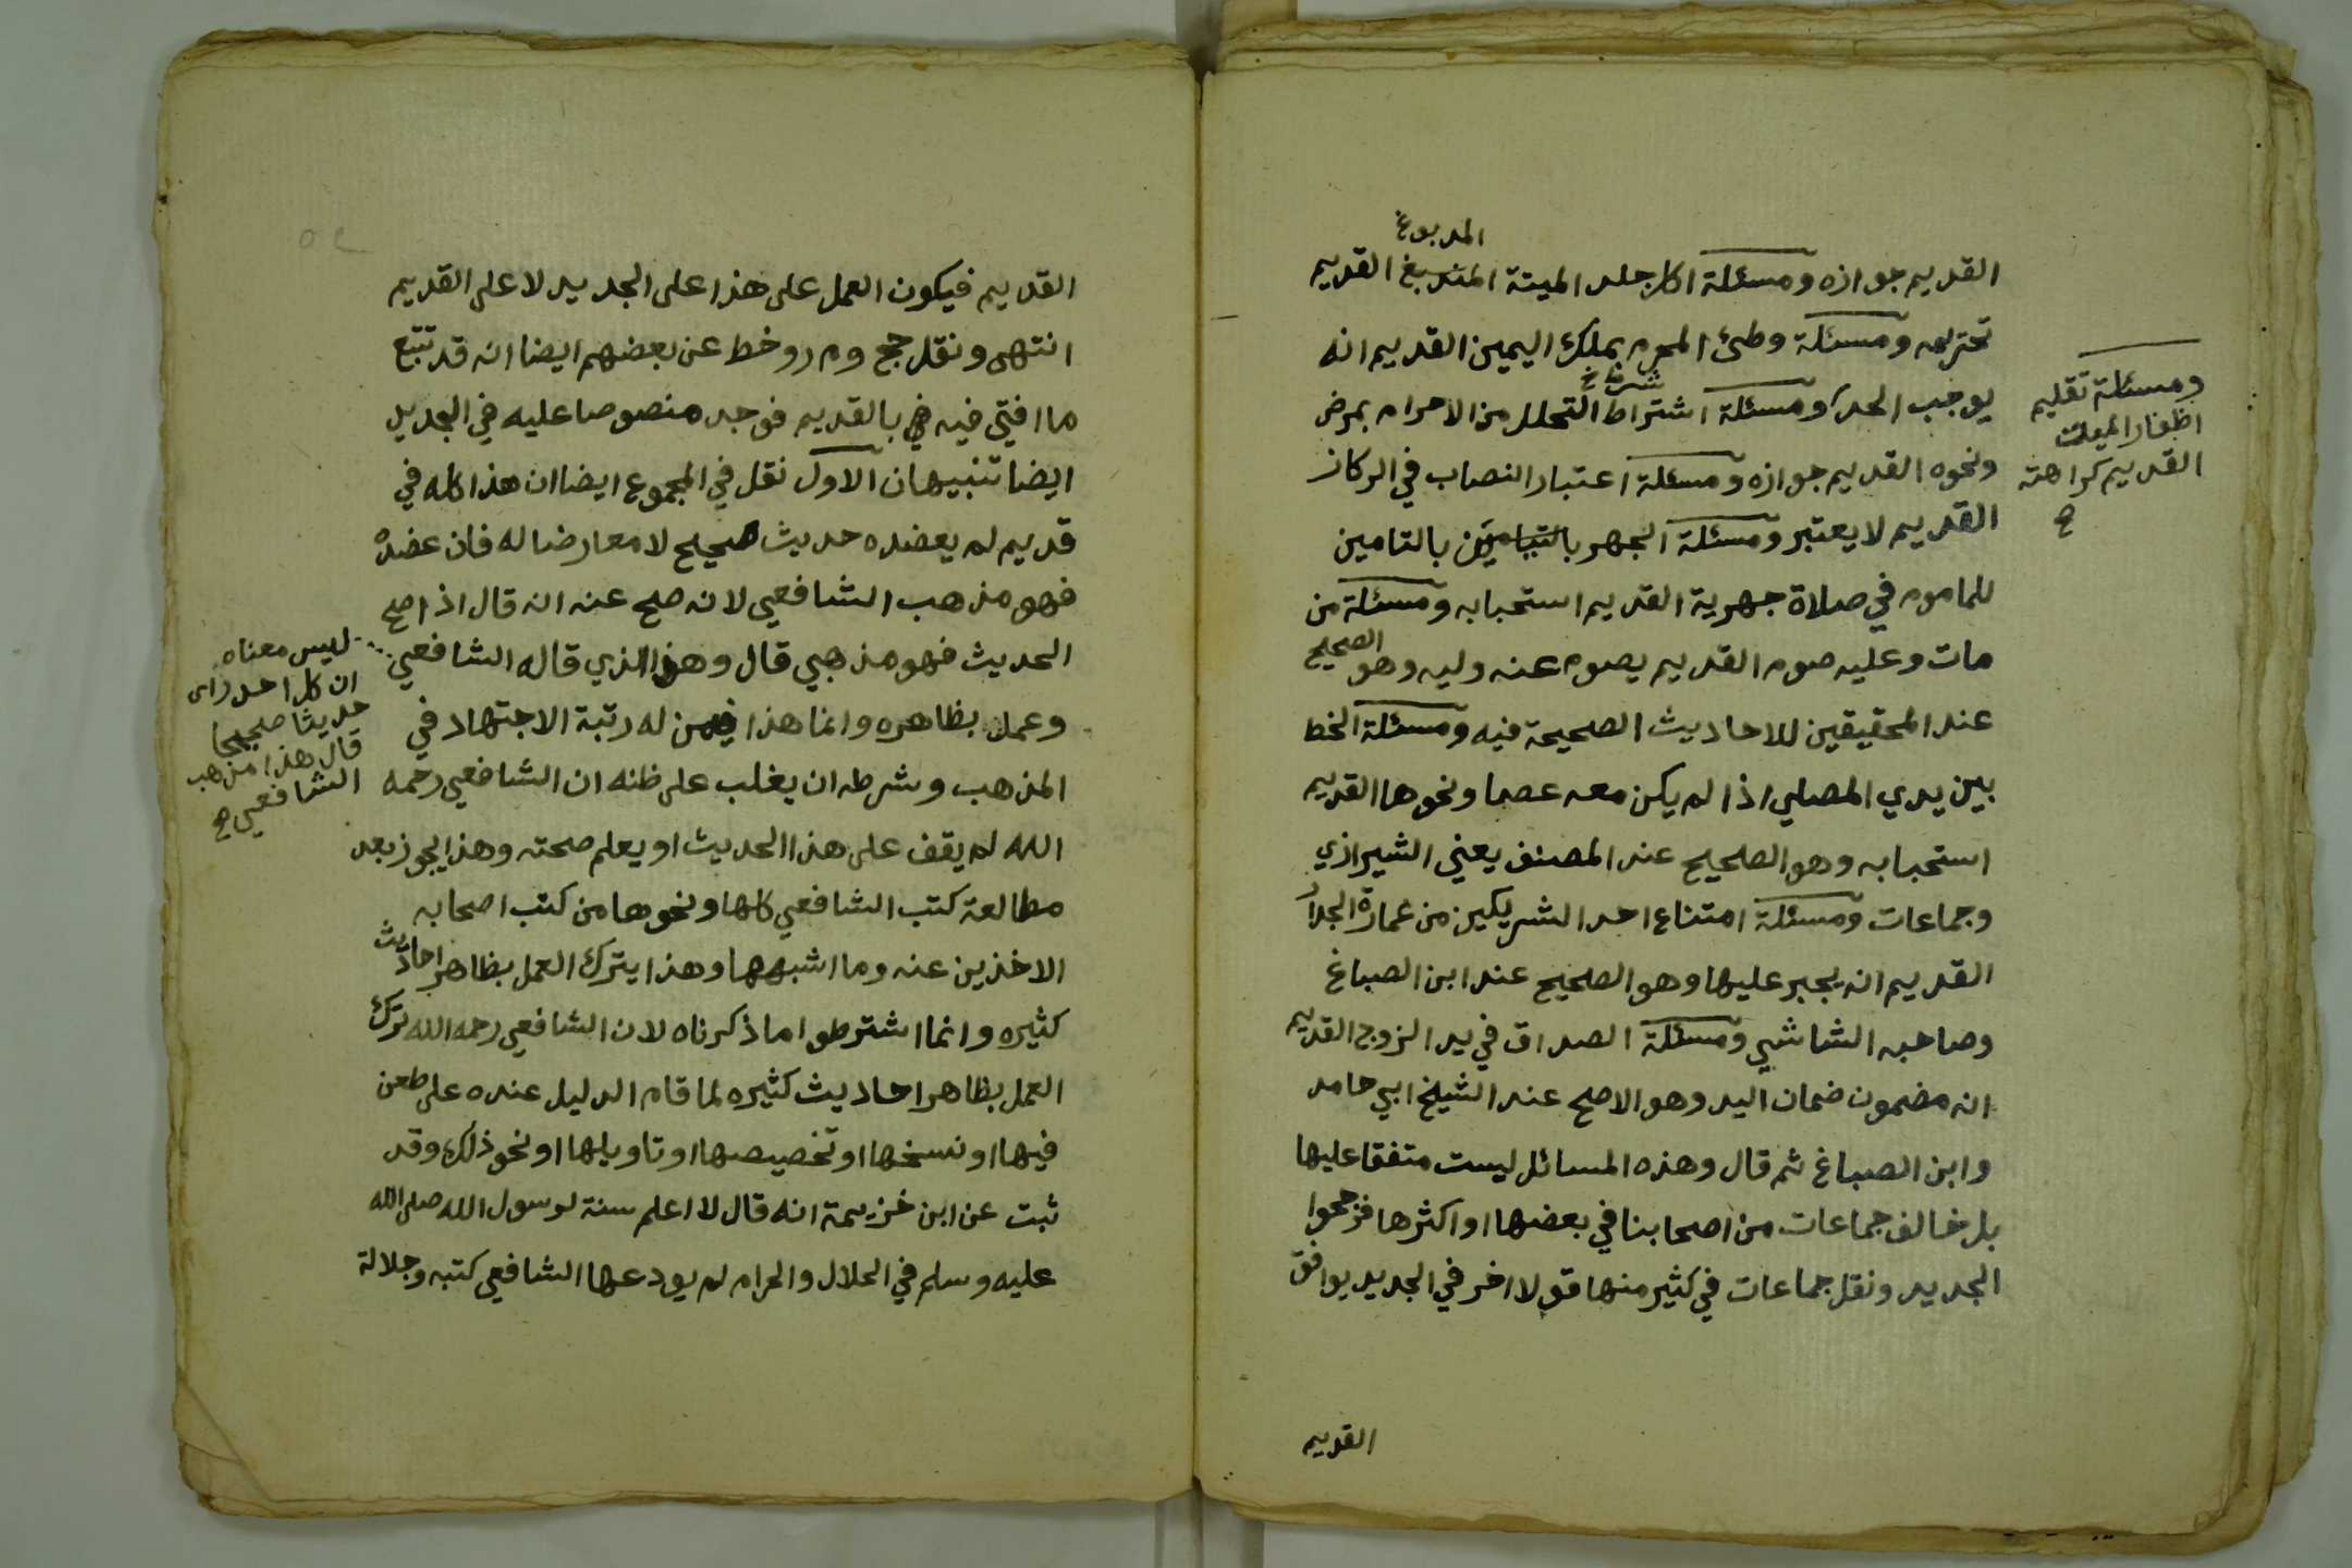 المدبوغ
القديم جوازه ومسئلة اكل جلد الميتة المندبغ القديم
تحتريمه ومسئلة وطئ المحرم بملك اليمين القديم انه
يوجب الحد ومسئلة اشتراط التحلل من الاحرام بمرض
ونحوه القديم جوازه ومسئلة اعتبار النصاب في الركاز
القديم لا يعتبر ومسئلة الجهر بالتامين بالتامين
للماموم في صلاة جهرية القديم استحبابه ومسئلة من
مات وعليه صوم القديم يصوم عنه وليه وهو الصحيح
عند المحقيقين للاحاديث الصحيحة فيه ومسئلة الخط
بين يدي المصلي اذا لم يكن معه عصا ونحوها القديم
استحبابه وهو الصحيح عند المصنف يعني الشيرازي
وجماعات ومسئلة امتناع احد الشريكين من عمارة الجدار
القديم انه يجبر عليها وهو الصحيح عند ابن الصباغ
وصاحبه الشاشي ومسئلة الصداق في يد الزوج القديم
انه مضمون ضمان اليد وهو الاصح عند الشيخ ابي حامد
وابن الصباغ ثم قال وهذه المسائل ليست متفقا عليها
بل خالف جماعات من اصحابنا في بعضها او اكثرها فرجحوا
الجديد ونقل جماعات في كثير منها قولا اخر في الجديد يوافق
القديم
ومسئلة تقليم
اظفار الميت
القديم كراهته
القديم فيكون العمل على هذا على الجديد لا على القديم
انتهى ونقل حج و م ر و خط عن بعضهم ايضا انه قد تتبع
ما افتى فيه بالقديم فوجد منصوصا عليه في الجديد
ايضا تنبيهان الاول نقل في المجموع ايضا ان هذا كله في
قديم لم يعضده حديث صحيح لا معارضا له فان عضده
فهو مذهب الشافعي لانه صح عنه انه قال اذا صح
الحديث فهو مذهبي قال وهذا الذي قاله الشافعي
وعمل بظاهره وانما هذا فيمن له رتبة الاجتهاد في
المذهب وشرطه ان يغلب على ظنه ان الشافعي رحمه
الله لم يقف على هذا الحديث او يعلم صحته وهذا يجوز بعد
مطالعة كتب الشافعي كلها ونحوها من كتب اصحابه
الاخذين عنه وما اشبهها وهذا يترك العمل بظاهر احاديث
كثيره وانما اشترطوا ما ذكرناه لان الشافعي رحمه الله ترك
العمل بظاهر احاديث كثيره لما قام الدليل عنده على طعن
فيها او نسخها او تخصيصها او تاويلها او نحو ذلك وقد
ثبت عن ابن خزيمة انه قال لا اعلم سنة لرسول الله صلى الله
عليه وسلم في الحلال والحرام لم يودعها الشافعي كتبه وجلالة
ليس معناه
ان كل احد راى
حديثا صحيحا
قال هذا مذهب
الشافعي